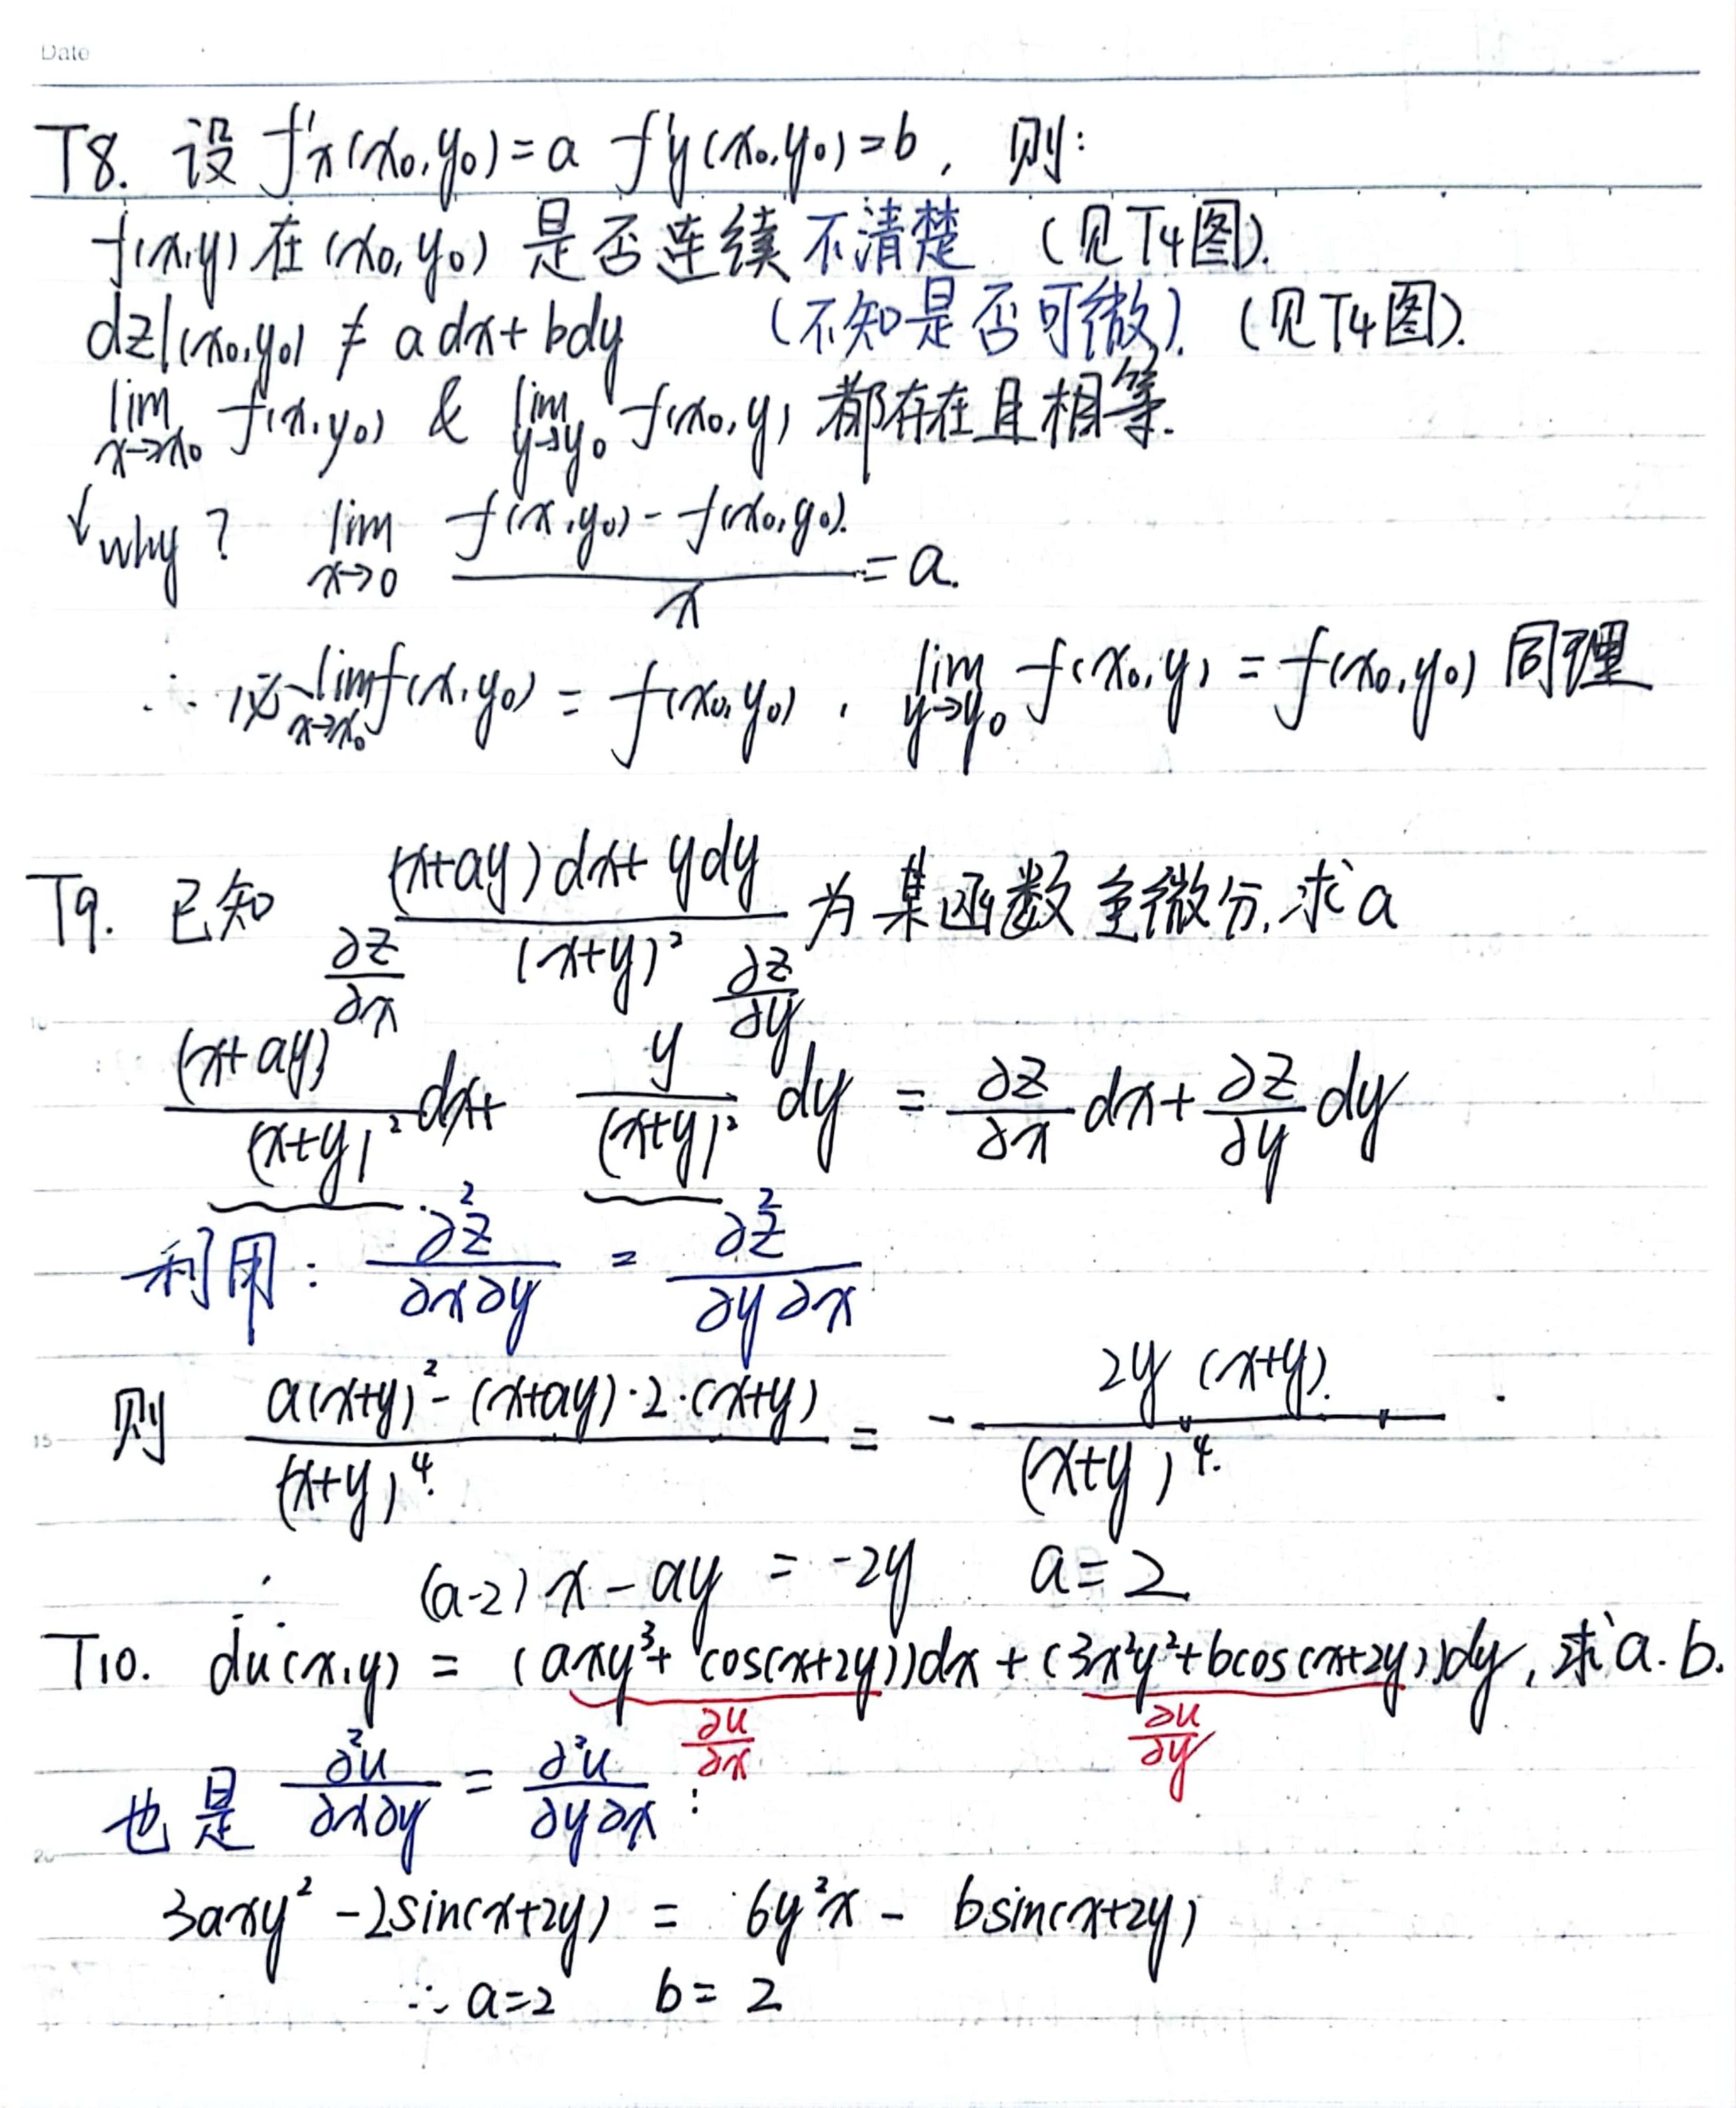 Date
T8. 设 f'x(x₀,y₀)=a f'y(x₀,y₀)=b, 则:
f(x,y) 在 (x₀,y₀) 是否连续 不清楚 (见T4图).
dz|(x₀,y₀) ≠ adx+bdy (不知是否可微). (见T4图).
lim x→x₀ f(x,y₀) & lim y→y₀ f(x₀,y) 都存在且相等.
↓why? lim x→0 (f(x,y₀)-f(x₀,y₀).)/x = a.
∴ 必 lim x→x₀ f(x,y₀) = f(x₀,y₀), lim y→y₀ f(x₀,y) = f(x₀,y₀) 同理
T9. 已知 ((x+ay)dx+ydy)/(x+y)² 为某函数全微分,求a
∂z/∂x ∂z/∂y
(x+ay)/(x+y)² dx+ y/(x+y)² dy = ∂z/∂x dx+ ∂z/∂y dy
利用: ∂²z/∂x∂y = ∂²z/∂y∂x
则 (a(x+y)²-(x+ay)·2·(x+y))/(x+y)⁴ = - 2y(x+y)/(x+y)⁴.
∴ (a-2)x-ay = -2y a=2
T10. du(x,y) = (axy³+cos(x+2y))dx+(3x²y²+bcos(x+2y))dy, 求a.b.
∂u/∂x ∂u/∂y
也是 ∂²u/∂x∂y = ∂²u/∂y∂x :
3axy²-2sin(x+2y) = 6y²x- bsin(x+2y)
∴ a=2 b=2